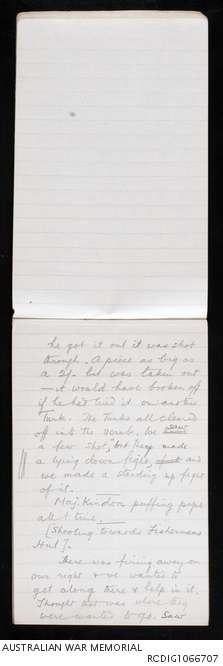 he got it out it was shot
through. A piece as big as
a 2/- bit was taken out
– it would have broken off
if he had tried it on another
Turk. The Turks all cleared
off into the scrub. We saw
a few shot, but they made
a lying down fight, and
we made a standing up fight
of it.
Maj. Kindon puffing pipe
all t time.
[Shooting towards Fishermans
Hut].
There was firing away on
our right & we wanted to
get along there & help in it.
Thought tt was where they
were wanted to go. Saw
AUSTRALIAN WAR MEMORIAL
RCDIG1066707